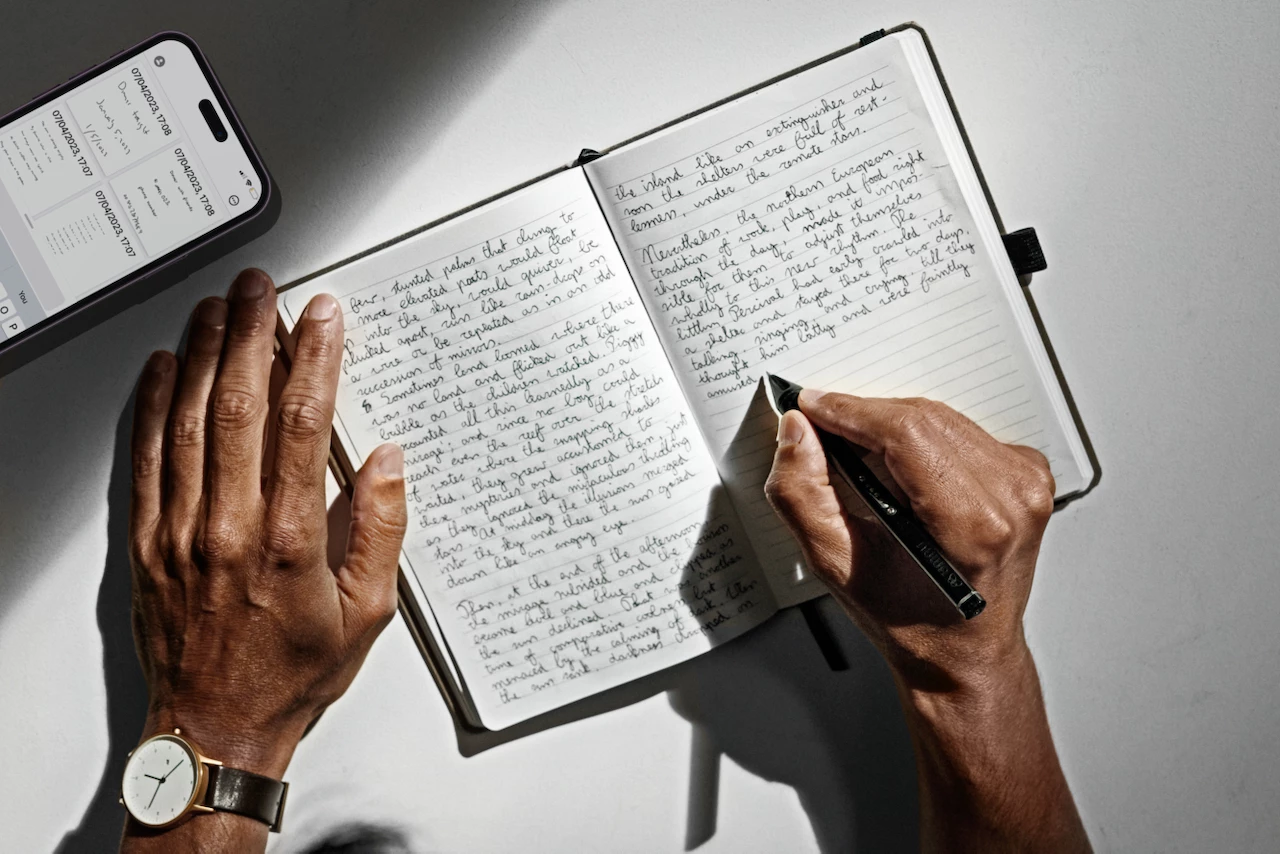 few, stunted palms that clung to
more elevated parts would float
into the sky, would quiver, be
plucked apart, run like rain-drops on
a wire or be repeated as in an odd
succession of mirrors.
Sometimes land loomed where there
was no land and flicked out like a
bubble as the children watched. Piggy
discounted all this learnedly as a
"mirage"; and since no boy could
reach even the reef over the stretch
of water where the snapping sharks
waited, they grew accustomed to
these mysteries and ignored them, just
as they ignored the miraculous, throbbing
stars. At midday the illusions merged
into the sky and there the sun gazed
down like an angry eye.
Then, at the end of the afternoon
the mirage subsided and the horizon
became level and blue and clipped as
the sun declined. That was another
time of comparative coolness but
menaced by the coming of dark. When
the sun sank, darkness dropped on
the island like an extinguisher and
soon the shelters were full of rest-
lessness, under the remote stars.
Nevertheless, the northern European
tradition of work, play, and food right
through the day, made it impos-
sible for them to adjust themselves
wholly to this new rhythm. The
littlun Percival had early crawled into
a shelter and stayed there for two days,
talking, singing, and crying, till they
thought him batty and were faintly
amused
07/04/2023, 17:08
Dinner tonight
January 5, 2023
1/5/2023
07/04/2023, 17:08
07/04/2023, 17:07
07/04/2023, 17:07
You
O
P